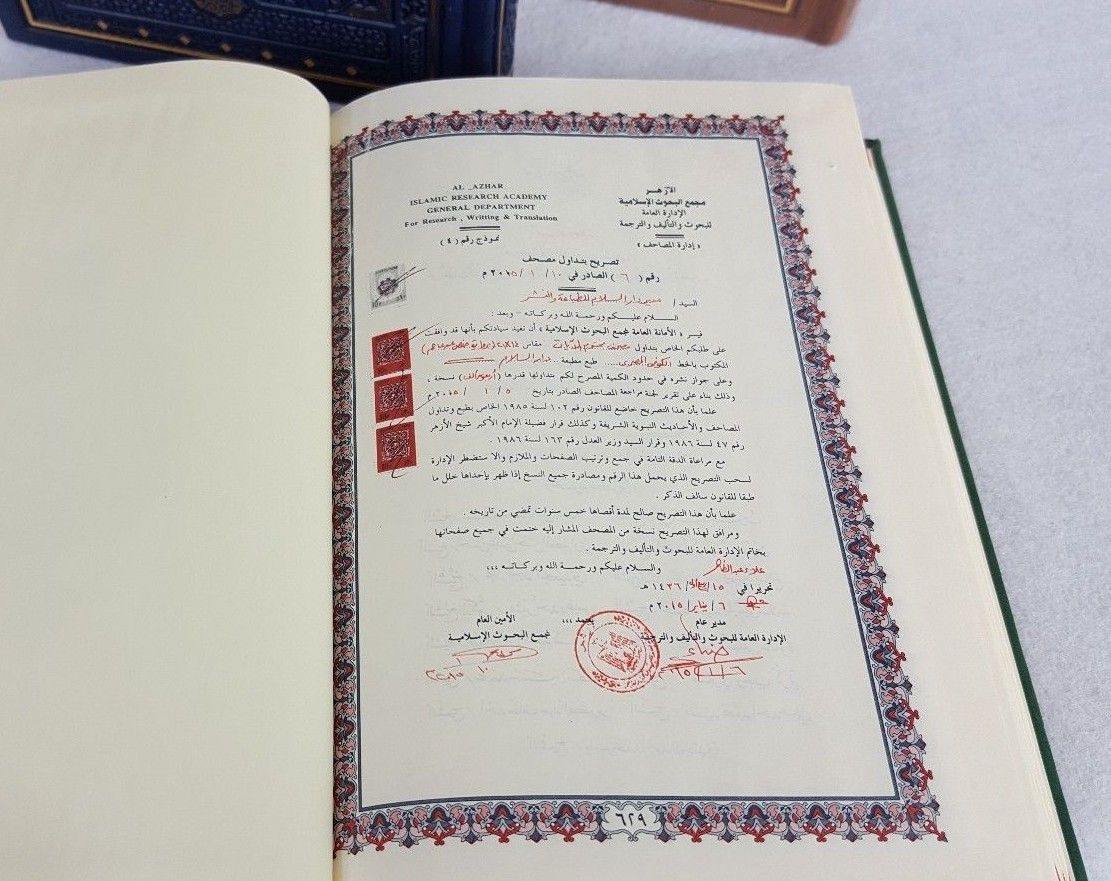 AL _AZHAR
ISLAMIC RESEARCH ACADEMY
GENERAL DEPARTMENT
For Research , Writting & Translation
الأزهر
مجمع البحوث الإسلامية
الإدارة العامة
للبحوث والتأليف والترجمة
« إدارة المصاحف »
نموذج رقم ( ٤ )
تصريح بتداول مصحف
رقم ( ٦ ) الصادر في ١٠ / ١ / ٢٠١٥ م
السيد / مدير دار السلام للطباعة والنشر
السلام عليكم ورحمة الله وبركاته – وبعد :
« الأمانة العامة لمجمع البحوث الإسلامية » أن تفيد سيادتكم بأنها قد وافقت
على طلبكم الخاص بتداول مصحف مقاس
المكتوب بالخط طبع مطبعة .. دار السلام
وعلى جواز نشره في حدود الكمية المصرح لكم بتداولها قدرها ( ألف ) نسخة ،
وذلك بناء على تقرير لجنة مراجعة المصاحف الصادر بتاريخ ٥ / ١ / ٢٠١٥ م
علما بأن هذا التصريح خاضع للقانون رقم ١٠٢ لسنة ١٩٨٥ الخاص بطبع وتداول
المصاحف والأحاديث النبوية الشريفة وكذلك قرار فضيلة الإمام الأكبر شيخ الأزهر
رقم ٤٧ لسنة ١٩٨٦ وقرار السيد وزير العدل رقم ١٦٣ لسنة ١٩٨٦ .
مع مراعاة الدقة التامة في جمع وترتيب الصفحات والملازم والا ستضطر الإدارة
لسحب التصريح الذي يحمل هذا الرقم ومصادرة جميع النسخ إذا ظهر بإحداها خلل ما
طبقا للقانون سالف الذكر .
علما بأن هذا التصريح صالح لمدة أقصاها خمس سنوات تمضي من تاريخه .
ومرافق لهذا التصريح نسخة من المصحف المشار إليه ختمت في جميع صفحاتها
بخاتم الإدارة العامة للبحوث والتأليف والترجمة .
والسلام عليكم ورحمة الله وبركاته ،،،
تحريرا في ١٥ / / ١٤٣٦ هـ
٦ / يناير / ٢٠١٥ م
مدير عام
الإدارة العامة للبحوث والتأليف والترجمة
يعتمد ،،،
الأمين العام
لمجمع البحوث الإسلامية
٦٢٩